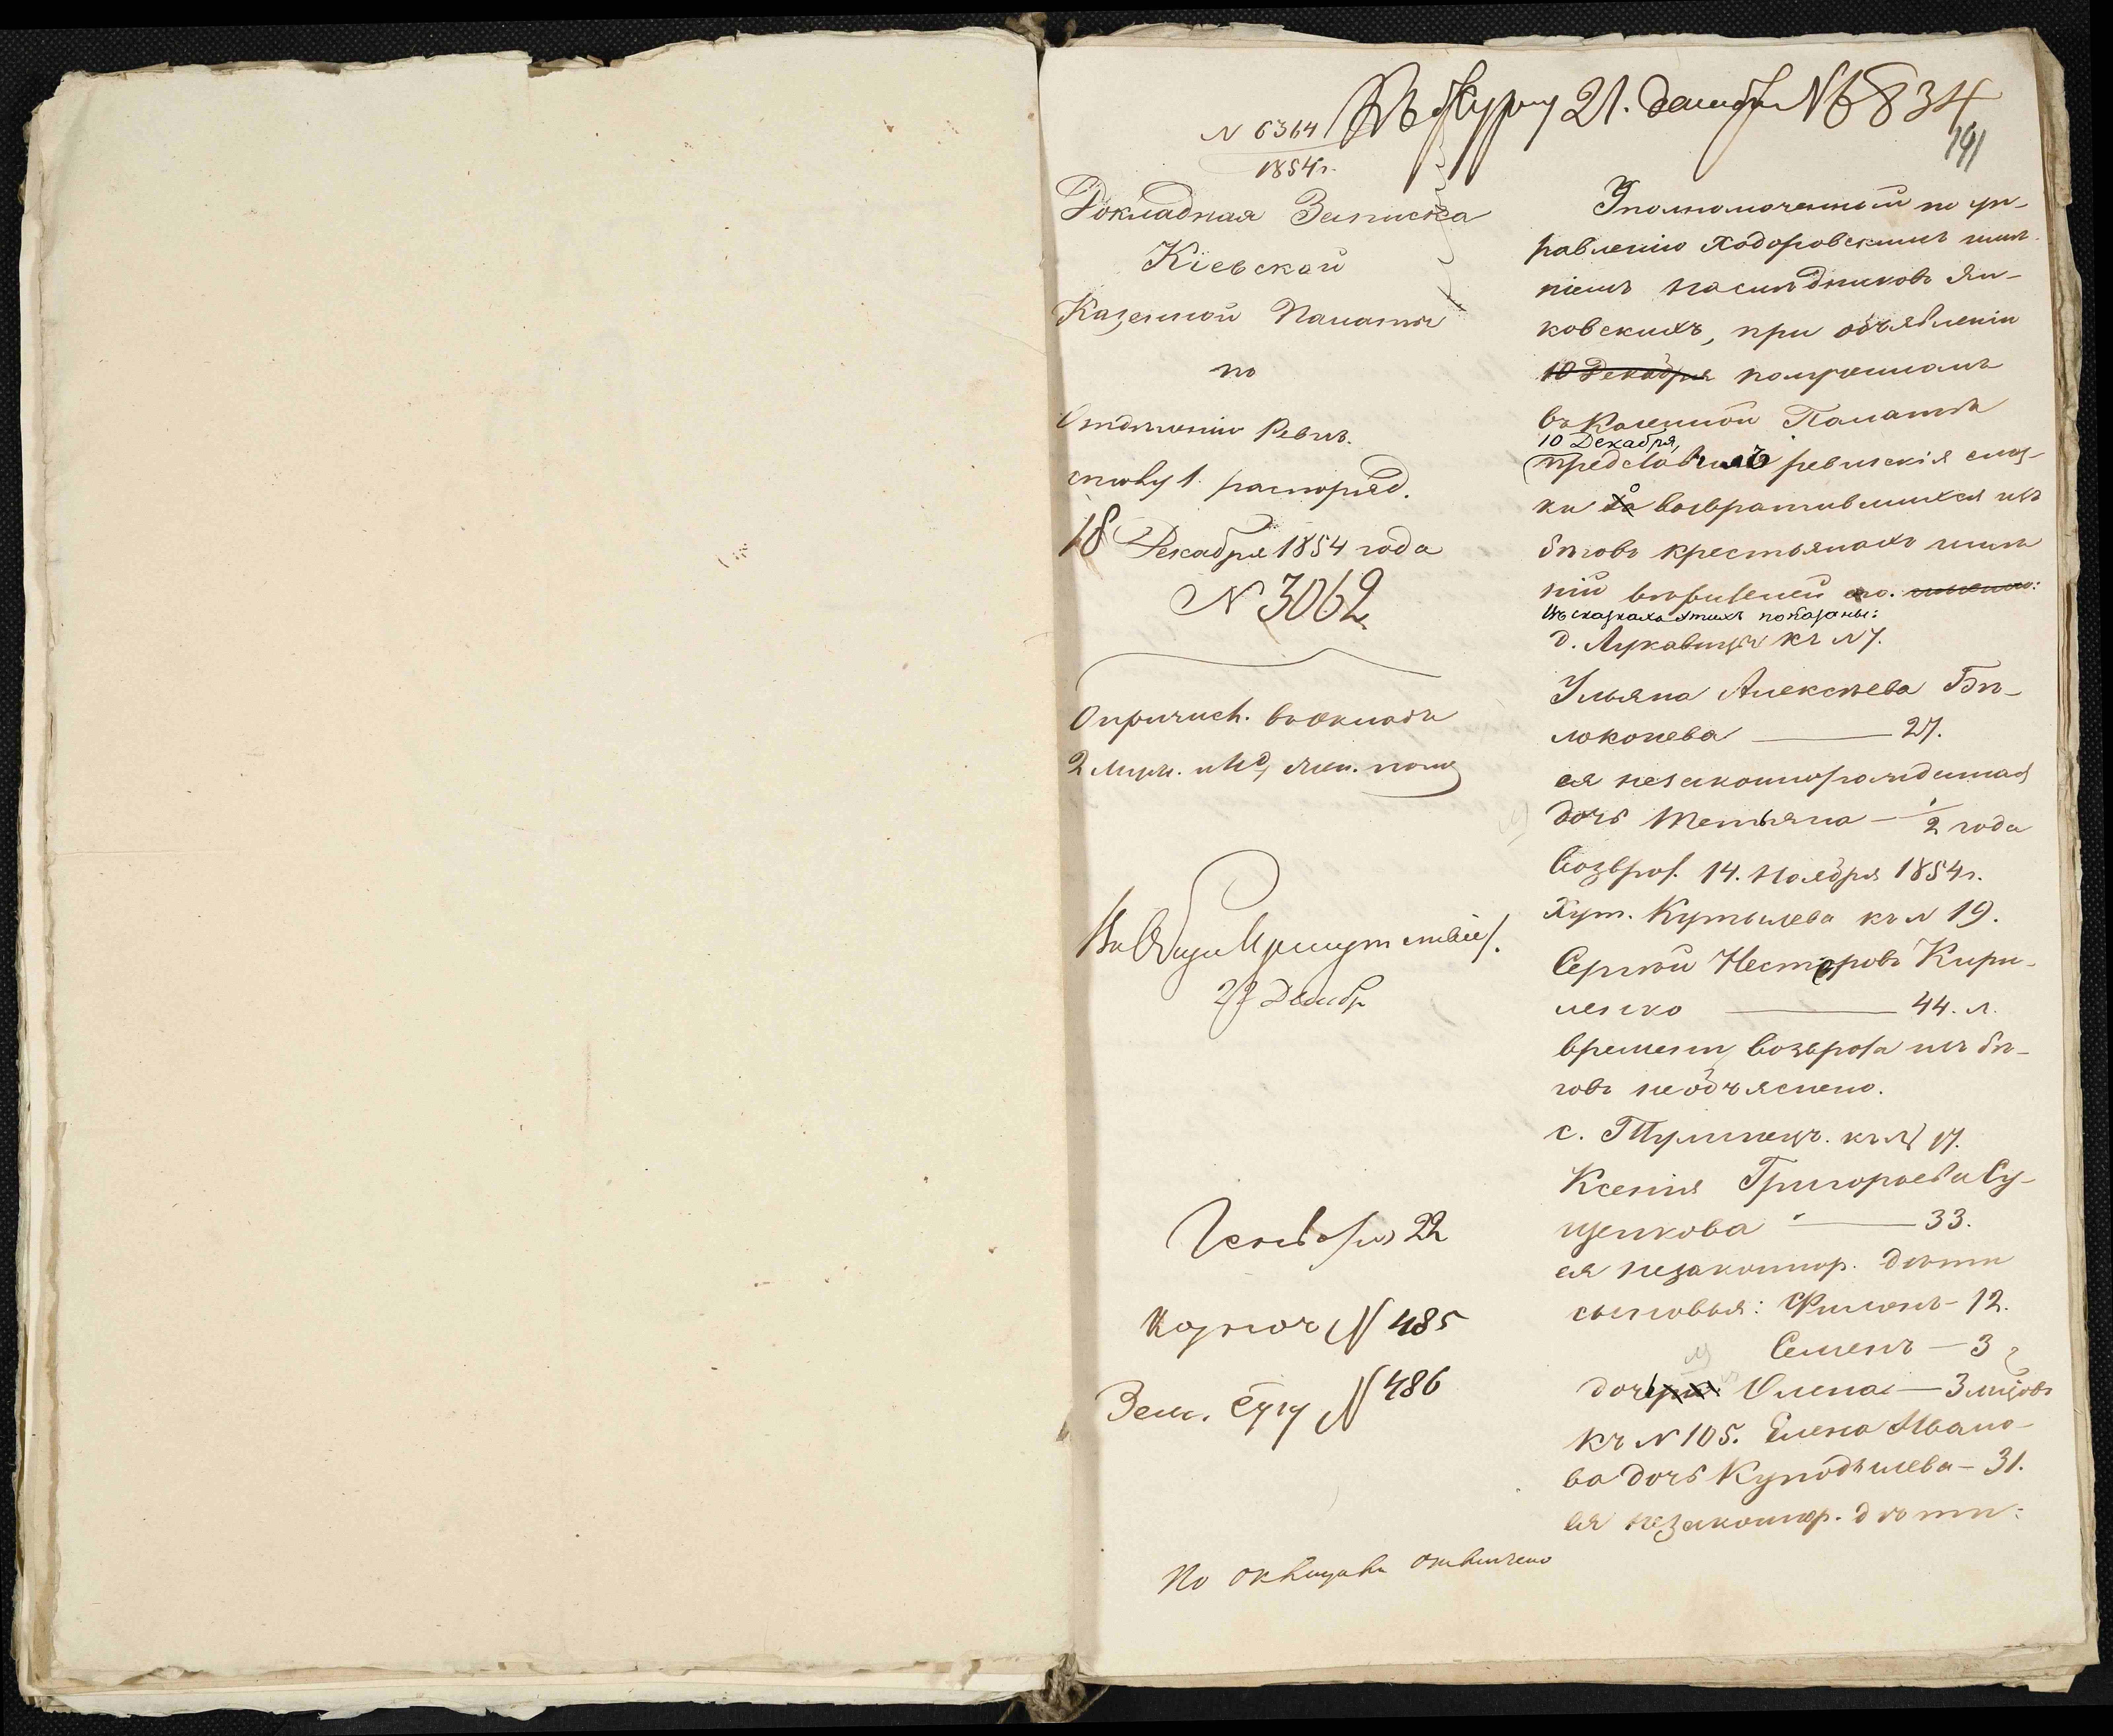 Къ журну 21. декабря № 6834
191
N 6364
1854 г.
Докладная Записка
Кіевской
Казенной Палаты
по
Отдѣленію Ревиз.
столу 1. распоряд.
18 Декабря 1854 года
N 3062
О причисл. въ окладъ
2 муж. и
Въ Общее Присутствіе
22 Декабр
Генваря 22
N 485
Зем. Суду N 486
По
Уполномоченный по уп-
равленію Ходоровскимъ имѣ-
ніемъ наслѣдниковъ Ян-
ковскихъ, при объявленіи
10 Декабря полученномъ
въ Казенной Палатѣ
10 Декабря,
представилъ ревизскія сказ-
ки о возвратившихся изъ
бѣговъ крестьянахъ имѣ
ній вѣрителей его.
Въ сказкахъ этихъ показаны:
д. Лукавицы къ N 7.
Ульяна Алексѣева Бѣ-
локонева — 27.
ея незаконнорожденная
дочь Татьяна — 1/2 года
Возврат. 14. Ноября 1854 г.
Хут. Кутылева къ N 19.
Сергѣй Несторовъ Кири-
ленко — 44. л.
времени возврата изъ бѣ-
говъ необъяснено.
с. Тулинецъ. къ N 17.
Ксенія Григорьева Су-
щенкова — 33.
ея незаконнор. дѣти
сыновья: Филонъ - 12.
Семенъ — 3
дочь Олена — 3 мѣсяцовъ
къ N 105. Елена Ивано-
ва дочь — 31.
ея незаконнор. дѣти: